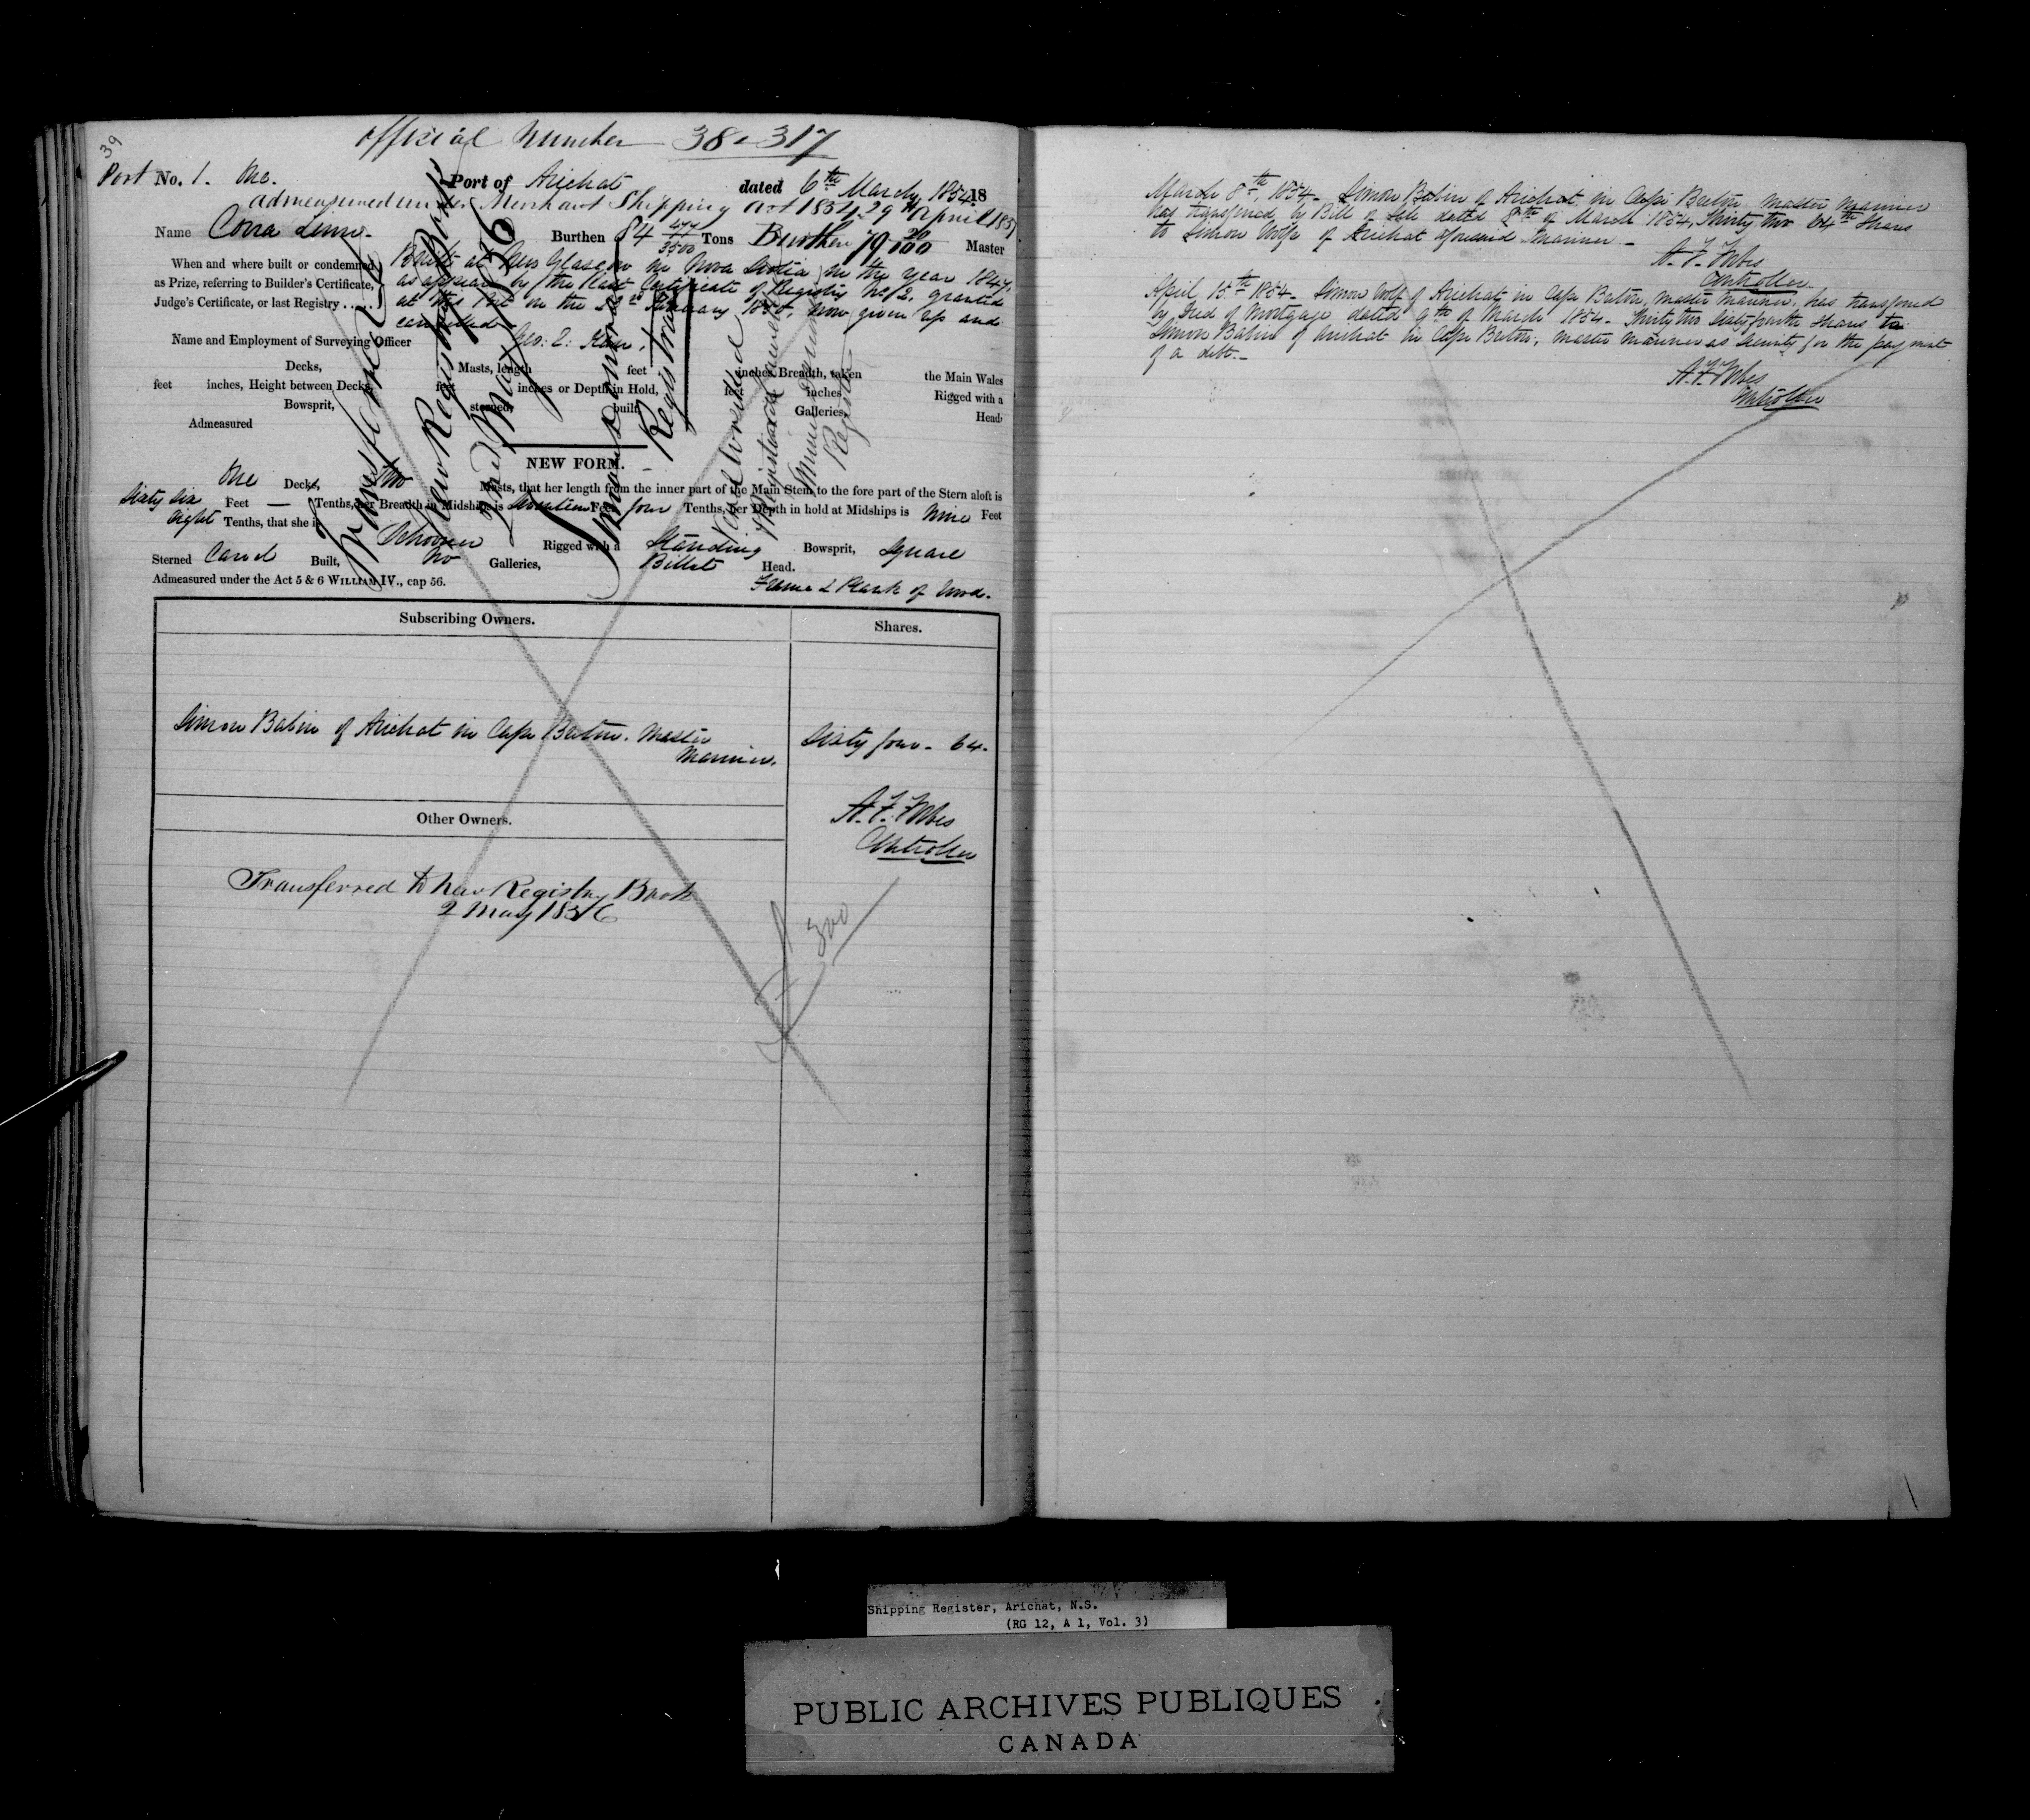 39
Official Number 38-317
Port No. 1. One. Port of Arichat dated 6th March 1854 18
admeasured under Merchant Shipping act 1854. 29th April 185
Name Corra Linn. Burthen 84 Tons Burthen 79 Master
When and where built or condemned Built at New Glasgow in Nova Scotia in the year 1847,
as Prize, referring to Builder's Certificate, as appears by the last Certificate of Registry No. 2, granted
Judge's Certificate, or last Registry ..... at this Port on the January 1850, now given up and
cancelled
Name and Employment of Surveying Officer Geo:
Decks, Masts, length feet inches, Breadth, taken the Main Wales
feet inches, Height between Decks, feet inches or Depth in Hold, feet inches Rigged with a
Bowsprit, sterned, built, Galleries, Head,
Admeasured
NEW FORM.
One Decks, two Masts, that her length from the inner part of the Main Stem to the fore part of the Stern aloft is
Sixty six Feet — Tenths, her Breadth in Midships is Feet four Tenths, her Depth in hold at Midships is Nine Feet
Eight Tenths, that she is Schooner Rigged with a Standing Bowsprit, Square
Sterned Carvel Built, No Galleries, Billet Head.
Admeasured under the Act 5 & 6 WILLIAM IV., cap 56. Frame & Plank of Wood.
Transferred to
New Registry Book
2nd May 1856
Registrar
Vessel
Registrar
Subscribing Owners. Shares.
Simon Babin of Arichat in Cape Breton. Master Sixty four - 64.
Mariner.
A. F. Forbes
Controller
Other Owners.
Transferred to New Registry Book
2 May 1856
300
March 8th, 1854. Simon Babin of Arichat in Cape Breton Master Mariner
has transferred by Bill of Sale dated 8th of March 1854, Thirty two 64th Shares
to Simon Wolfe of Arichat aforesaid Mariner.
A. F. Forbes
Controller.
April 15th 1854. Simon Wolf of Arichat in Cape Breton, Master Mariner, has transferred
by Deed of Mortgage dated 9th of March 1854. Thirty two Sixty fourth Shares to
Simon Babin of Arichat in Cape Breton, Master Mariner as Security for the payment
of a debt.
A. F. Forbes
Controller
Shipping Register, Arichat, N.S.
(RG 12, A 1, Vol. 3)
PUBLIC ARCHIVES PUBLIQUES
CANADA